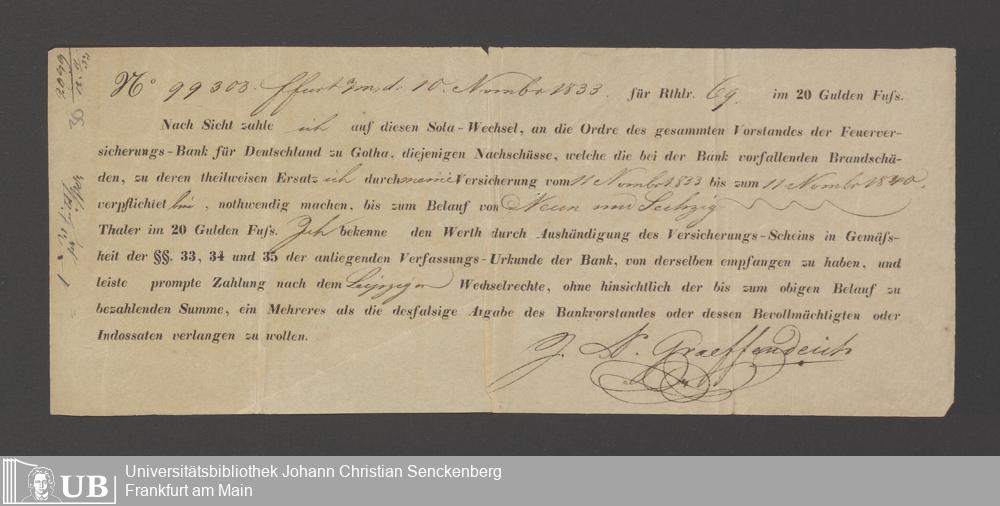 No 99303. Ffurt a/m, d. 10. Novembr 1833. für Rthlr. 69. im 20 Gulden Fuſs.
Nach Sicht zahle ich auf diesen Sola-Wechsel, an die Ordre des gesammten Vorstandes der Feuerver-
sicherungs-Bank für Deutschland zu Gotha, diejenigen Nachschüsse, welche die bei der Bank vorfallenden Brandschä-
den, zu deren theilweisen Ersatz ich durch meine Versicherung vom 11 Novembr 1833 bis zum 11 Novembr 1840.
verpflichtet bin, nothwendig machen, bis zum Belauf von Neun und Sechzig
Thaler im 20 Gulden Fuſs. Ich bekenne den Werth durch Aushändigung des Versicherungs-Scheins in Gemäſs-
heit der §§. 33, 34 und 35 der anliegenden Verfassungs-Urkunde der Bank, von derselben empfangen zu haben, und
leiste prompte Zahlung nach dem Leipziger Wechselrechte, ohne hinsichtlich der bis zum obigen Belauf zu
bezahlenden Summe, ein Mehreres als die desfalsige Angabe des Bankvorstandes oder dessen Bevollmächtigten oder
Indossaten verlangen zu wollen.
J. N. Graeffendeich
2099
30
UB
Universitätsbibliothek Johann Christian Senckenberg
Frankfurt am Main